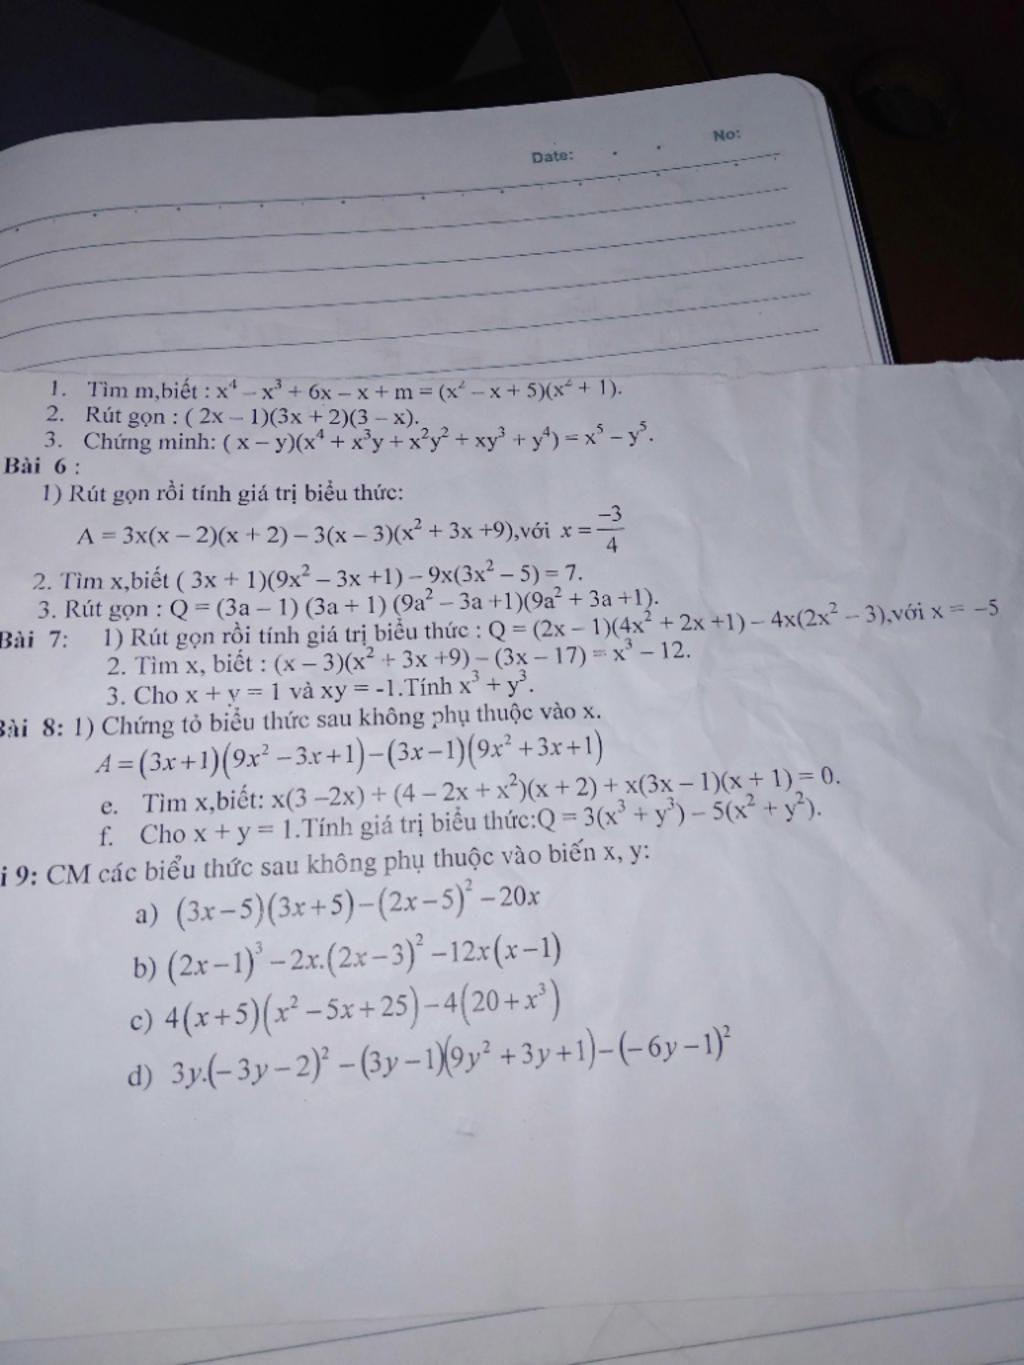 Date:
No:
1. Tìm m,biết : x⁴ – x³ + 6x – x + m = (x² – x + 5)(x² + 1).
2. Rút gọn : ( 2x – 1)(3x + 2)(3 – x).
3. Chứng minh: ( x – y)(x⁴ + x³y + x²y² + xy³ + y⁴) = x⁵ – y⁵.
Bài 6 :
1) Rút gọn rồi tính giá trị biểu thức:
A = 3x(x – 2)(x + 2) – 3(x – 3)(x² + 3x +9),với x = -3/4
2. Tìm x,biết ( 3x + 1)(9x² – 3x +1) – 9x(3x² – 5) = 7.
3. Rút gọn : Q = (3a – 1) (3a + 1) (9a² – 3a +1)(9a² + 3a +1).
Bài 7: 1) Rút gọn rồi tính giá trị biểu thức : Q = (2x – 1)(4x² + 2x +1) – 4x(2x² – 3),với x = –5
2. Tìm x, biết : (x – 3)(x² + 3x +9) – (3x – 17) = x³ – 12.
3. Cho x + y = 1 và xy = -1.Tính x³ + y³.
Bài 8: 1) Chứng tỏ biểu thức sau không phụ thuộc vào x.
A = (3x+1)(9x² – 3x+1) – (3x–1)(9x² + 3x+1)
e. Tìm x,biết: x(3 –2x) + (4 – 2x + x²)(x + 2) + x(3x – 1)(x + 1) = 0.
f. Cho x + y = 1.Tính giá trị biểu thức:Q = 3(x³ + y³) – 5(x² + y²).
i 9: CM các biểu thức sau không phụ thuộc vào biến x, y:
a) (3x – 5)(3x + 5) – (2x – 5)² – 20x
b) (2x – 1)³ – 2x.(2x – 3)² – 12x(x – 1)
c) 4(x + 5)(x² – 5x + 25) – 4(20 + x³)
d) 3y.(– 3y – 2)² – (3y – 1)(9y² + 3y + 1) – (– 6y – 1)²